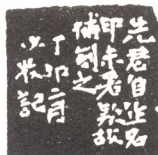 先君自作名
印未署款故
補刻之
丁卯二月
少牧記